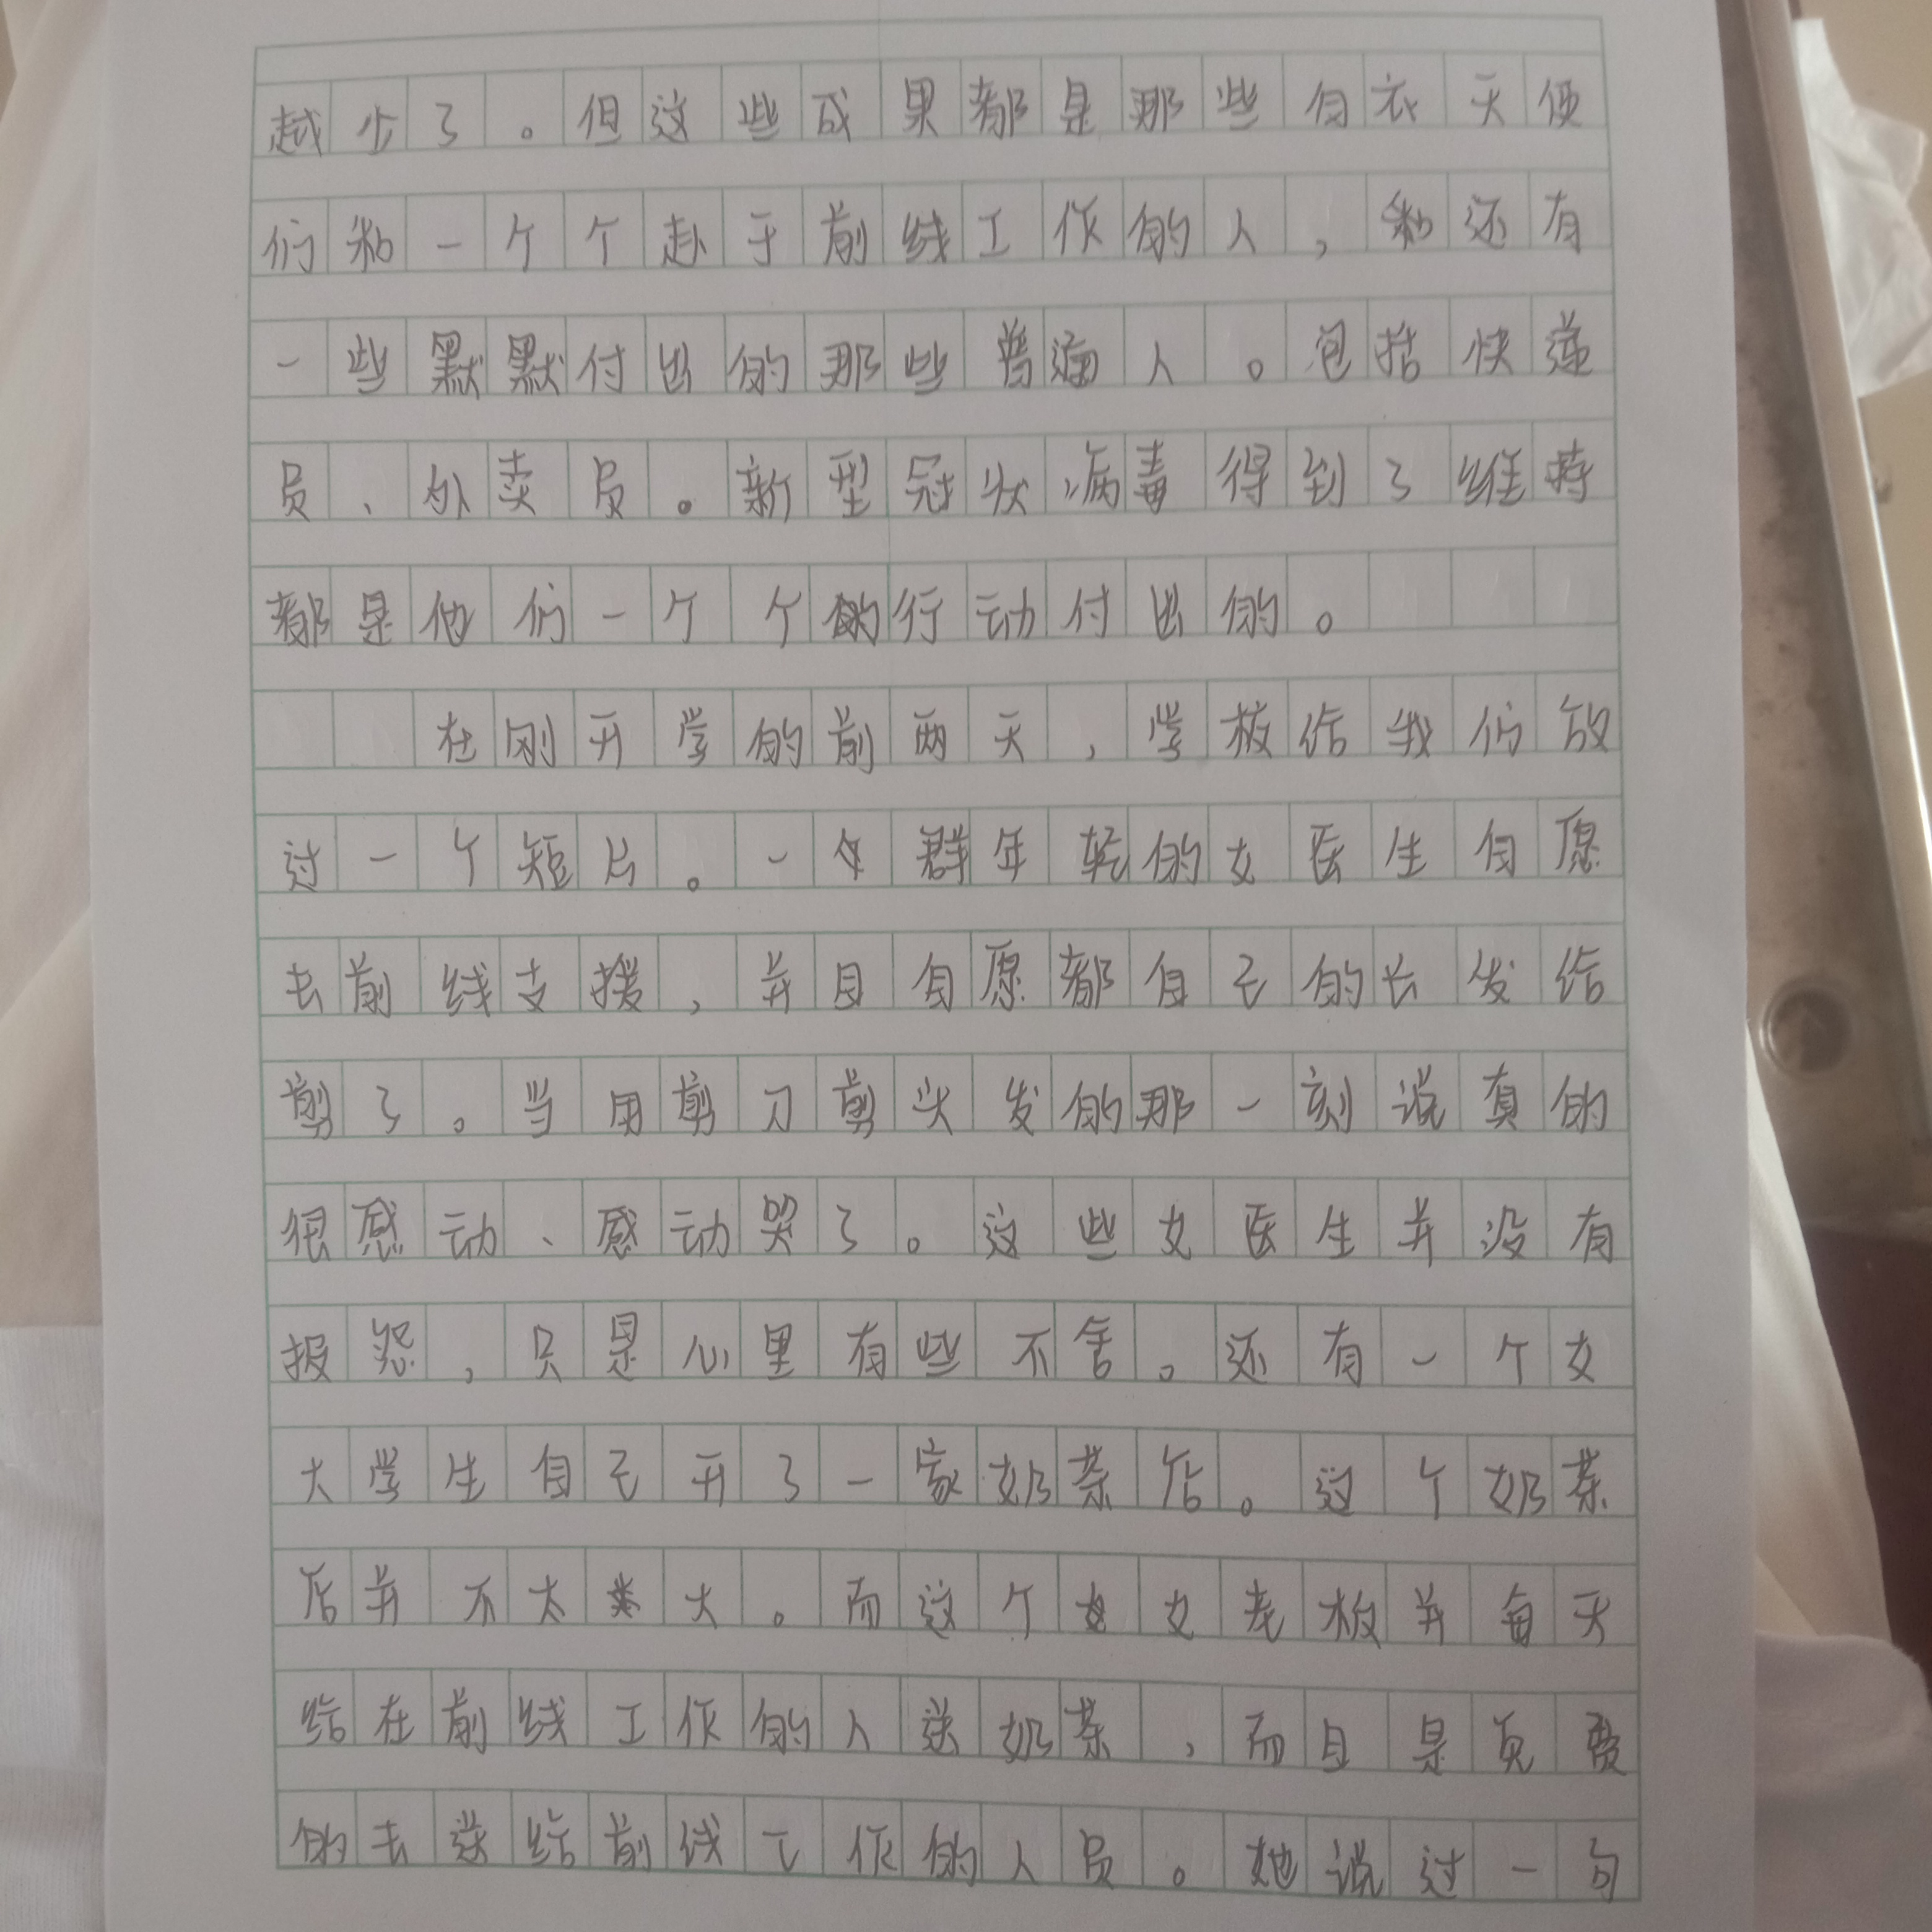 越少了。但这些成果都是那些白衣天使
们和一个个赴于前线工作的人，和还有
一些默默付出的那些普通人。包括快递
员、外卖员。新型冠状病毒得到了维持
都是他们一个个的行动付出的。
在刚开学的前两天，学校给我们放
过一个短片。一群年轻的女医生自愿
去前线支援，并且自愿都自己的长发给
剪了。当用剪刀剪头发的那一刻说真的
很感动、感动哭了。这些女医生并没有
报怨，只是心里有些不舍。还有一个女
大学生自己开了一家奶茶店。这个奶茶
店并不太大。而这个女老板并每天
给在前线工作的人送奶茶，而且是免费
的去送给前线工作的人员。她说过一句